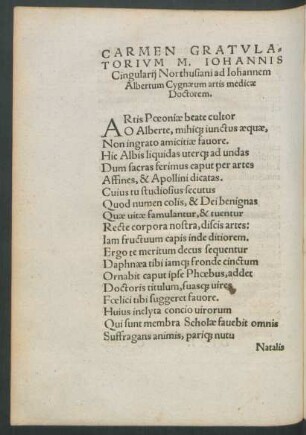 CARMEN GRATVLA-
TORIVM M. IOHANNIS
Cingularij Northusiani ad Iohannem
Albertum Cygnæum artis medicæ
Doctorem.
ARtis Pœoniæ beate cultor
O Alberte, mihiq; iunctus æquæ,
Non ingrato amicitiæ fauore.
Hic Albis liquidas uterq; ad undas
Dum sacras ferimus caput per artes
Affines, & Apollini dicatas.
Cuius tu studiosius secutus
Quod numen colis, & Dei benignas
Quæ uitæ famulantur, & tuentur
Recte corpora nostra, discis artes:
Iam fructuum capis inde ditiorem.
Ergo te meritum decus sequentur
Daphnæa tibi iamq; fronde cinctum
Ornabit caput ipse Phœbus, addet
Doctoris titulum, suasq; uires
Fœlici tibi suggeret fauore.
Huius inclyta concio uirorum
Qui sunt membra Scholæ fauebit omnis
Suffragans animis, pariq; nutu
Natalis